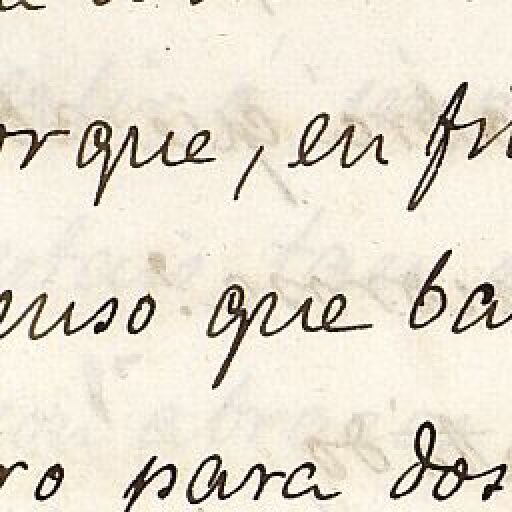 orque, en fi
enso que ba
ro para dos